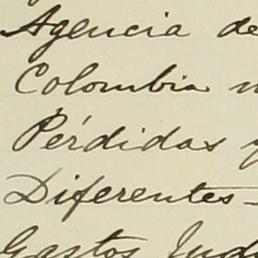 Agencia de
Colombia
Pérdidas y
Diferentes-
Gastos Jud